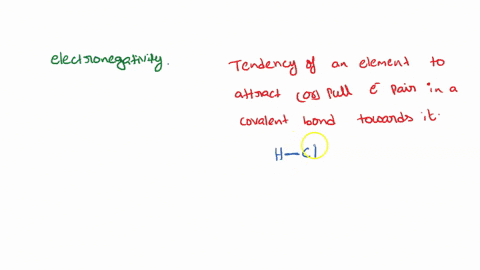 electronegativity.
Tendency of an element to
attract (or) pull e⁻ pair in a
covalent bond towards it.
H–Cl